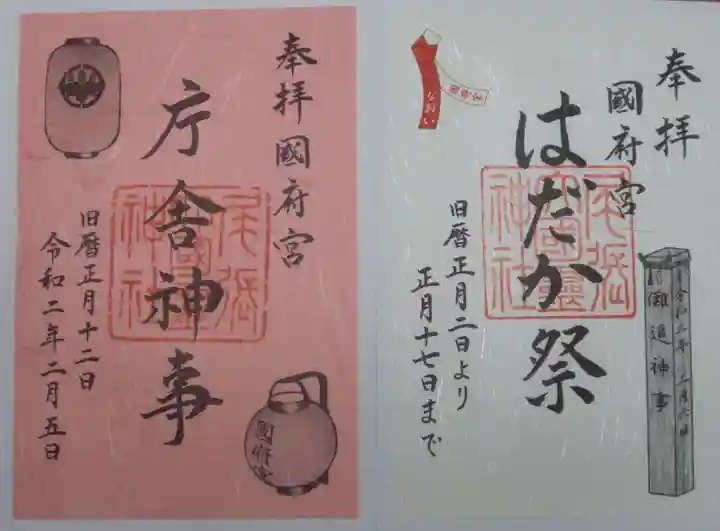 奉拝
國府宮
はだか祭
旧暦正月二日より
正月十七日まで
なおい
儺追神事
奉拝國府宮
庁舎神事
旧暦正月十二日
令和二年二月五日
國府宮
尾張大國霊神社